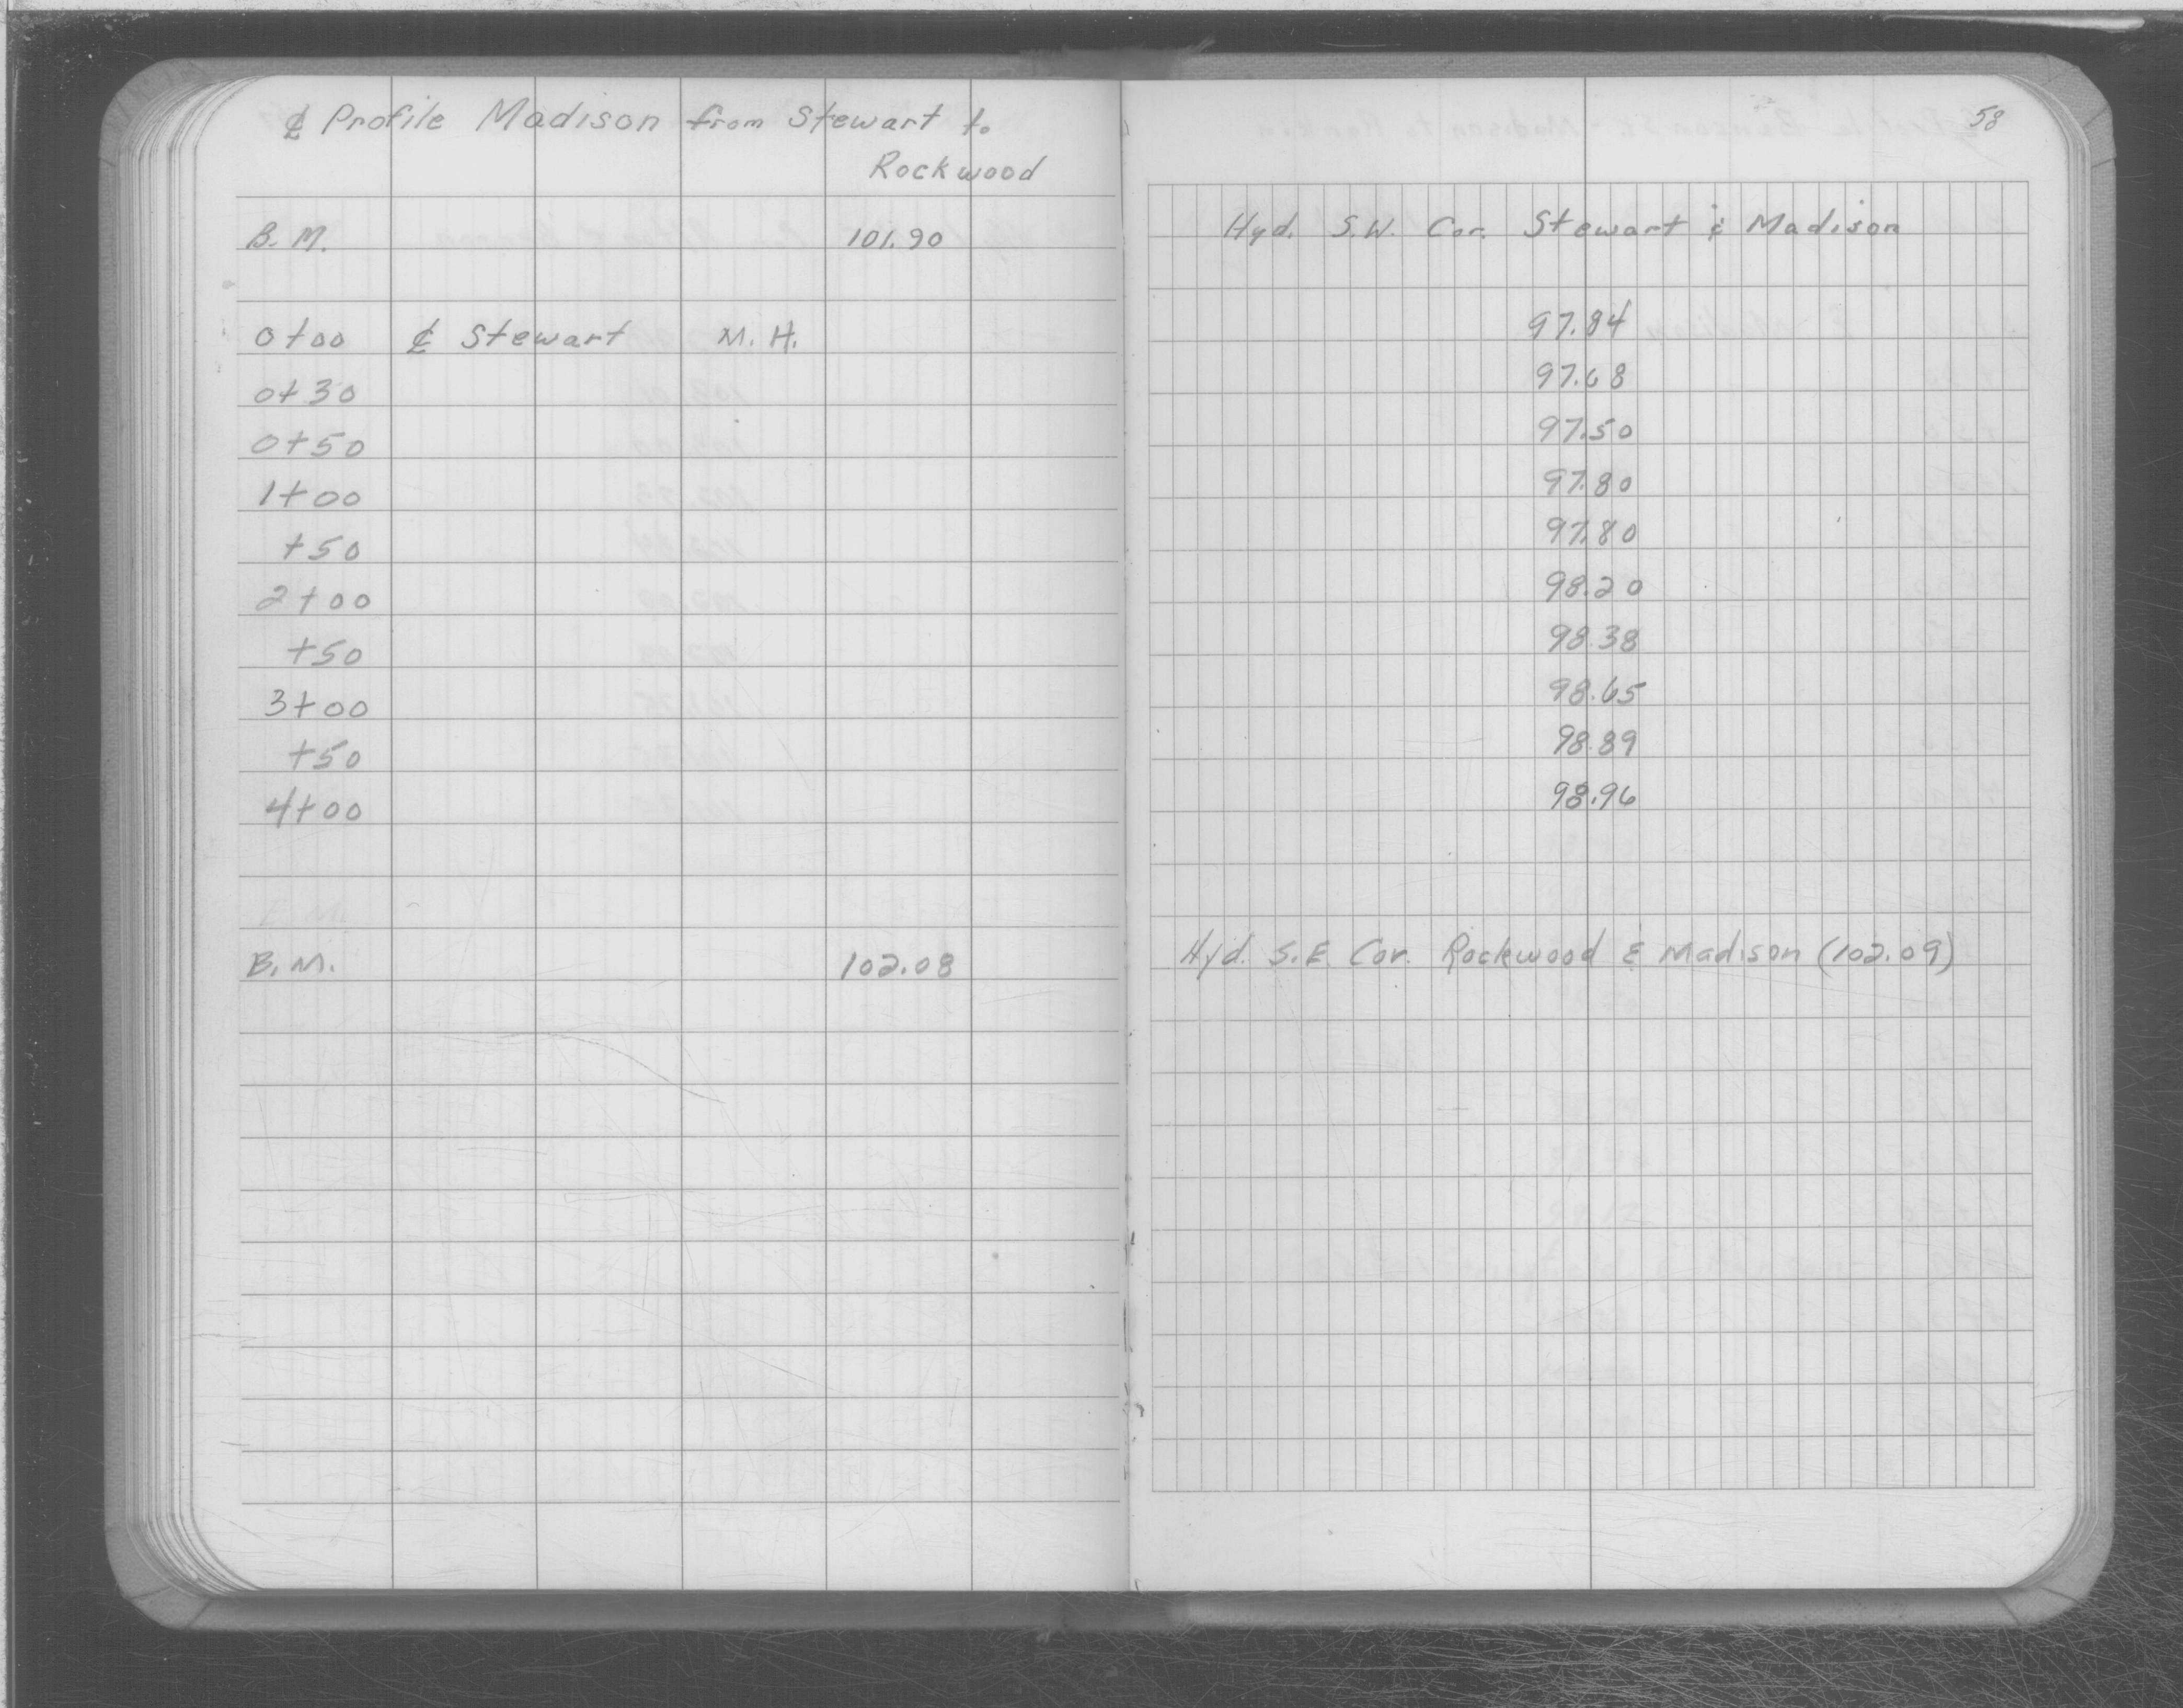 ℄ Profile Madison from Stewart to
Rockwood
58
B.M. 101.90 Hyd. S.W. Cor. Stewart & Madison
0+00 ℄ Stewart M.H. 97.84
0+30 97.68
0+50 97.50
1+00 97.80
+50 97.80
2+00 98.20
+50 98.38
3+00 98.65
+50 98.89
4+00 98.96
B.M.
B.M. 102.08 Hyd. S.E. Cor. Rockwood & Madison (102.09)